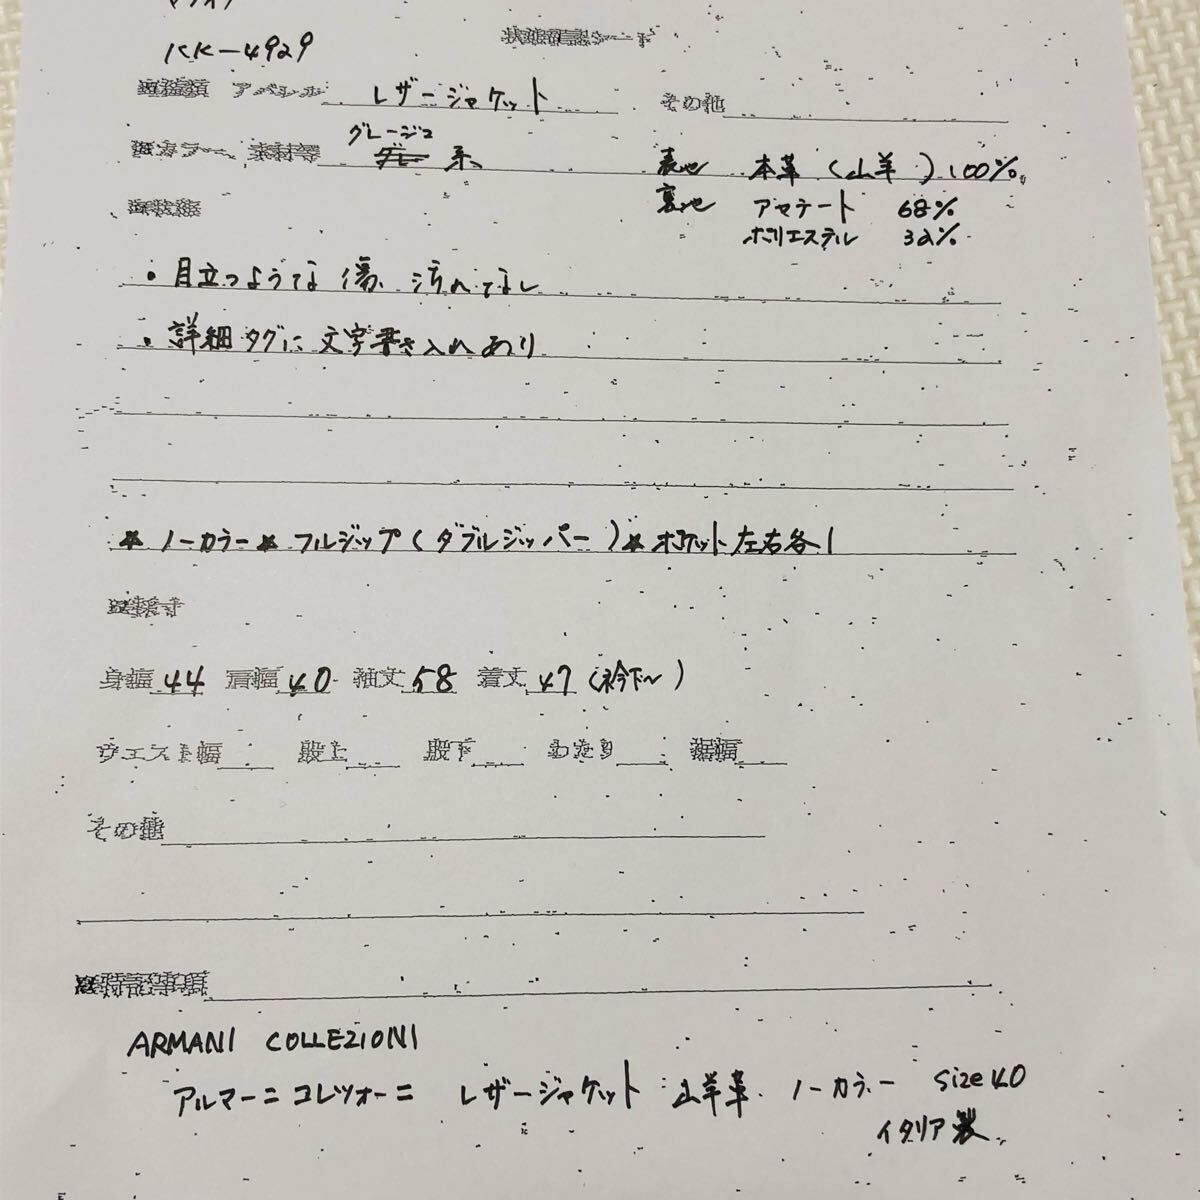 KK-4929
状態確認シート
アパレル レザージャケット その他
グレージュ
カラー、素材等 グレー 系 表地 本革(山羊)100%
裏地 アセテート 68%
ポリエステル 32%
・目立つような傷、汚れなし
・詳細タグに文字書き入れあり
★ノーカラー★フルジップ(ダブルジッパー)★ポケット左右各1
身幅 44 肩幅 40 袖丈 58 着丈 47(衿下〜)
ウエスト幅 股上 股下 わたり 裾幅
その他
特記事項
ARMANI COLLEZIONI
アルマーニ コレツォーニ レザージャケット 山羊革 ノーカラー size40
イタリア製